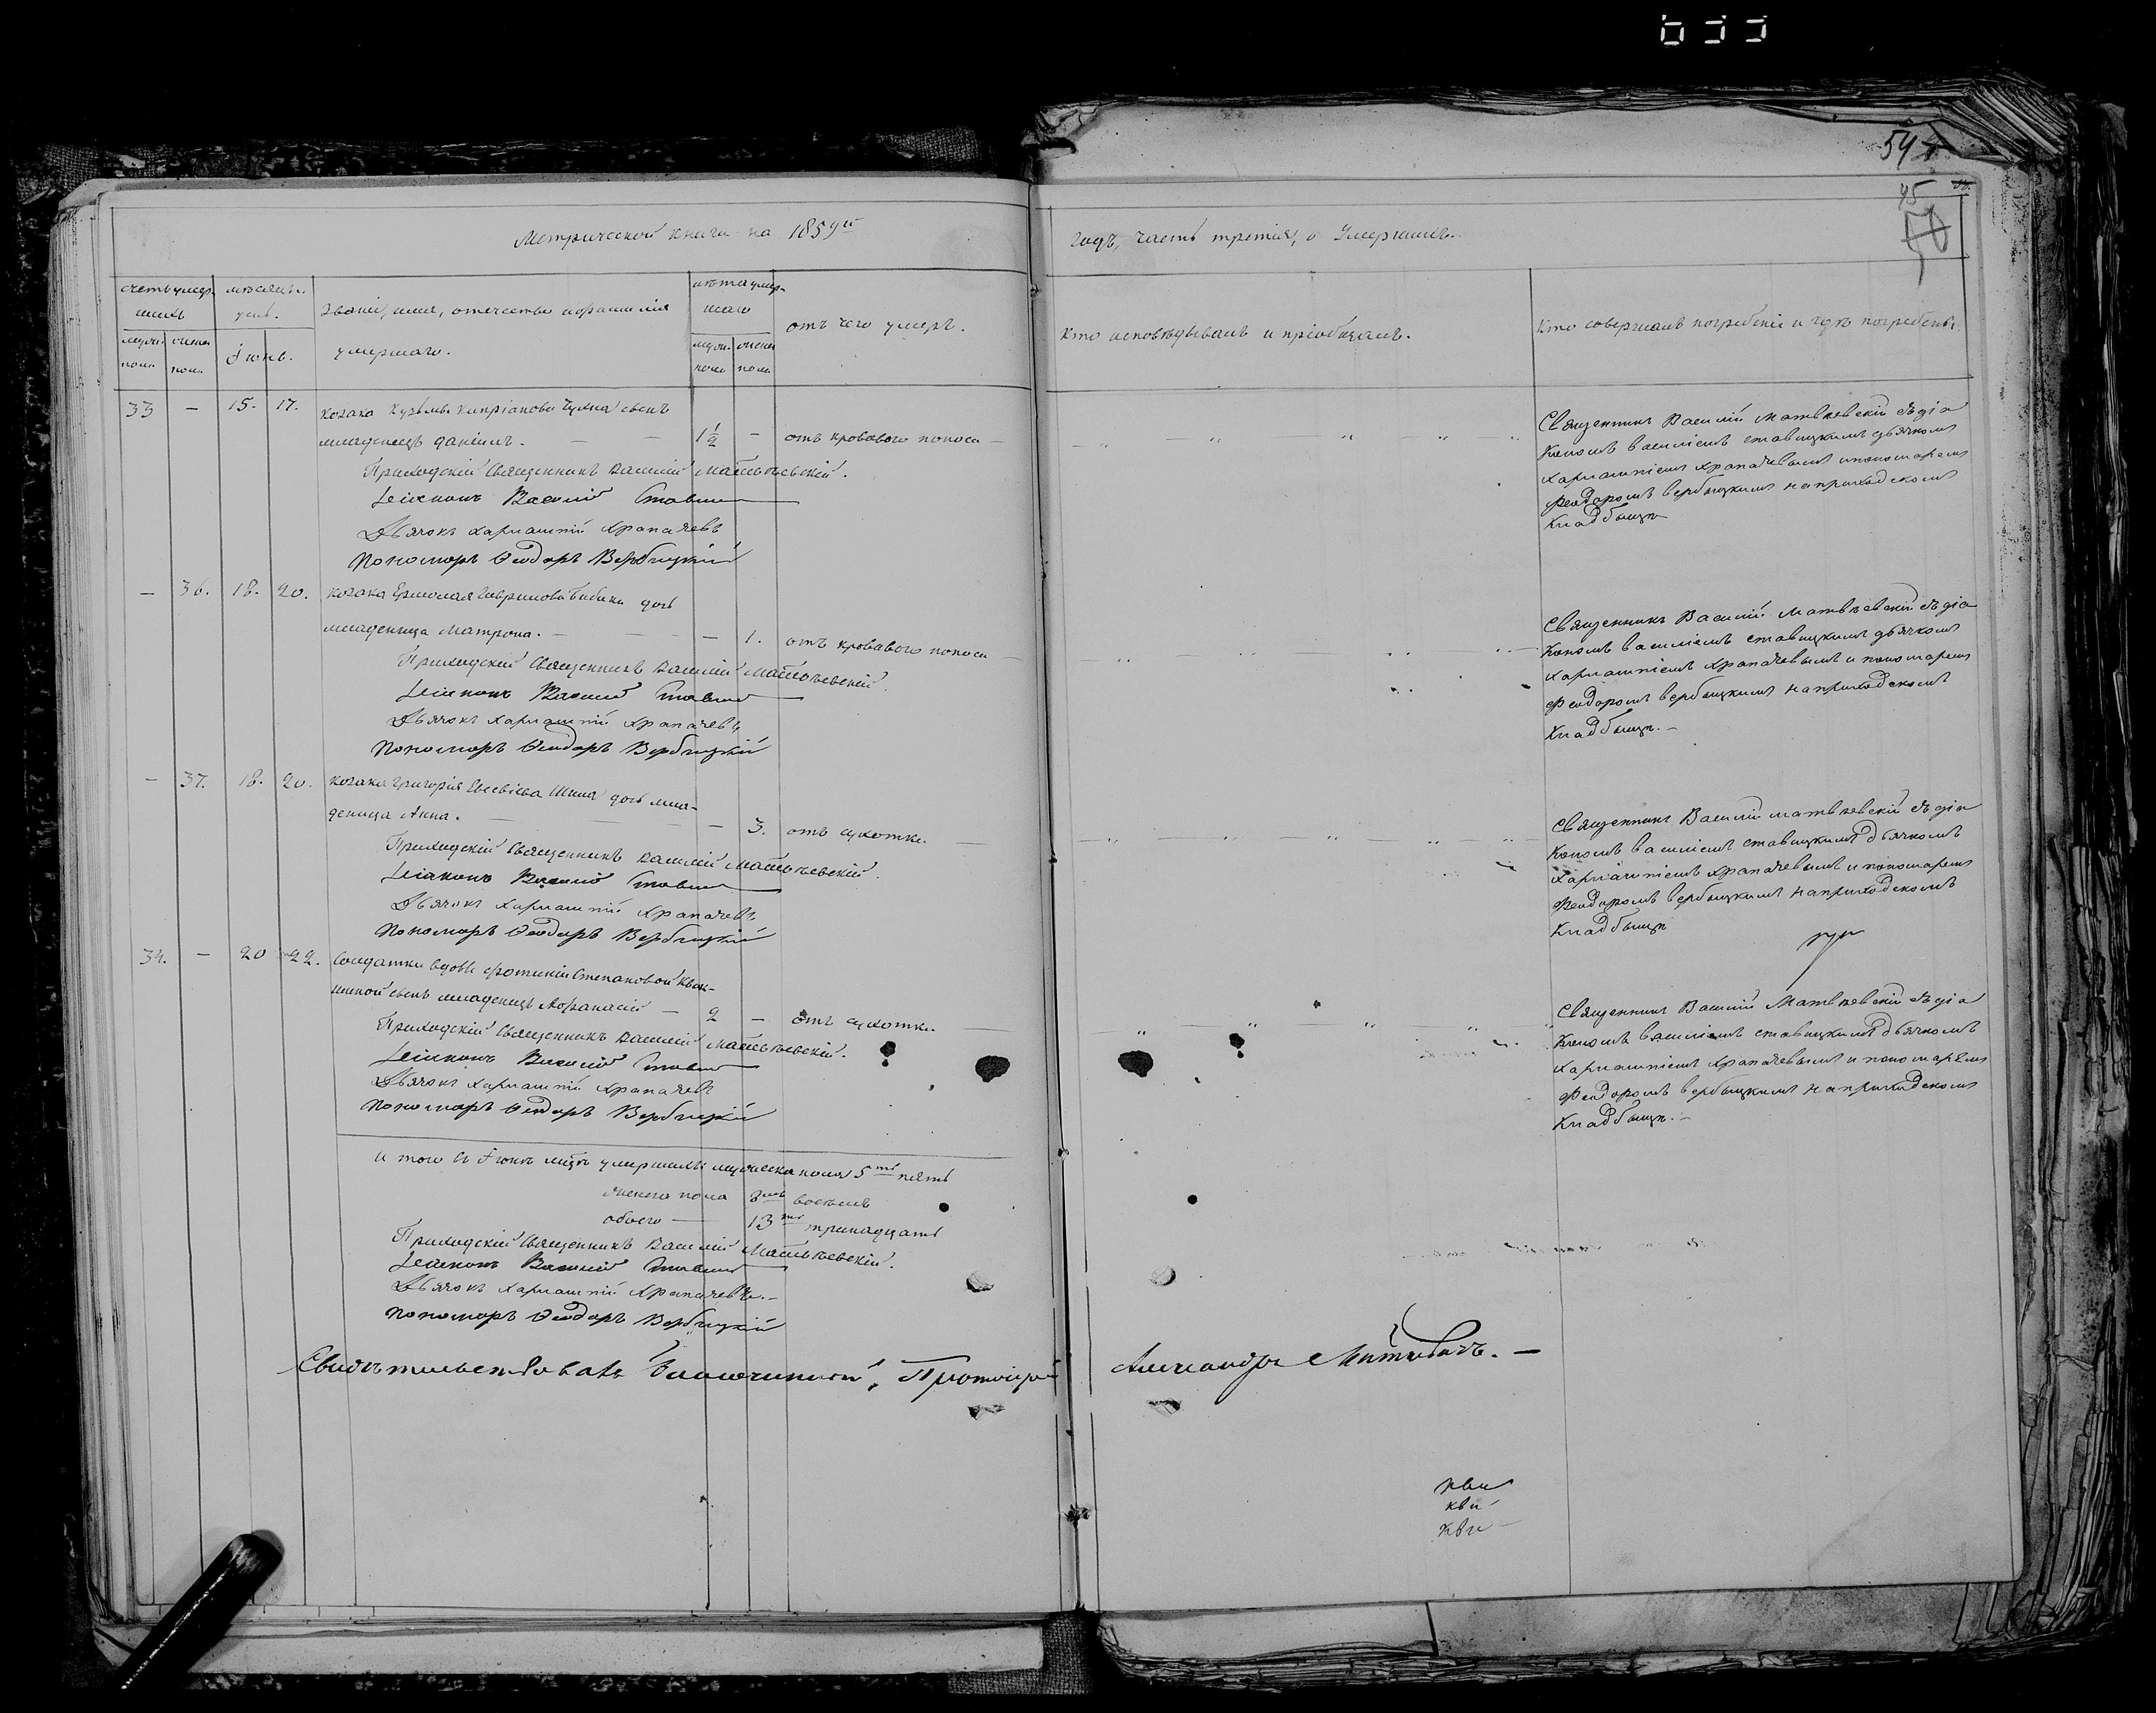 633
54
45
Метрической книги на 1859й
годъ, часть третія, о Умершихъ.
счетъ умер-
шихъ
мѣсяцъ.
день.
Званіе, имя, отечество и фамилія
умершаго.
лѣта умер-
шаго
отъ чего умеръ.
Кто исповѣдывалъ и пріобщалъ.
Кто совершалъ погребеніе и гдѣ погребены.
муж. пола
женск. пола
Іюнь.
муж. пола
женск. пола
33 — 15. 17. козака Кузьмы Кипріанова сынъ
младенецъ Даніилъ. — — 1½ — отъ кроваваго поноса —
Приходскій Священникъ Василій Матвѣевскій.
Діаконъ Василій
Дьячокъ Харлампій Храпачевъ
Пономарь Ѳеодоръ Вербицкій
Священникъ Василій Матвѣевскій съ діа
кономъ Василіемъ Ставицкимъ дьячкомъ
Харлампіемъ Храпачевымъ и пономаремъ
Феодоромъ Вербицкимъ на приходскомъ
кладбищѣ
— 36. 18. 20. козака Ермолая Гаврилова Бибика дочь
младеница Матрона. — — — 1. отъ кроваваго поноса —
Приходскій Священникъ Василій Матвѣевскій.
Діаконъ Василій
Дьячокъ Харлампій Храпачевъ
Пономарь Ѳеодоръ Вербицкій
Священникъ Василій Матвѣевскій съ діа
кономъ Василіемъ Ставицкимъ дьячкомъ
Харлампіемъ Храпачевымъ и пономаремъ
Феодоромъ Вербицкимъ на приходскомъ
кладбищѣ. —
— 37. 18. 20. козака Григорія Евсевіева дочь мла-
деница Анна. — — — 3. отъ сухотки —
Приходскій Священникъ Василій Матвѣевскій.
Діаконъ Василій
Дьячокъ Харлампій Храпачевъ
Пономарь Ѳеодоръ Вербицкій
Священникъ Василій Матвѣевскій съ діа
кономъ Василіемъ Ставицкимъ дьячкомъ
Харлампіемъ Храпачевымъ и пономаремъ
Феодоромъ Вербицкимъ на приходскомъ
кладбищѣ
34. — 20 22. Солдатки вдовы Фотиніи Степановой Квак-
шиной сынъ младенецъ Афанасій — 2 — отъ сухотки
Приходскій Священникъ Василій Матвѣевскій.
Діаконъ Василій
Дьячокъ Харлампій Храпачевъ
Пономарь Ѳеодоръ Вербицкій
Священникъ Василій Матвѣевскій съ діа
кономъ Василіемъ Ставицкимъ дьячкомъ
Харлампіемъ Храпачевымъ и пономаремъ
Феодоромъ Вербицкимъ на приходскомъ
кладбищѣ. —
И того въ Іюнѣ мцѣ умершихъ мужеска пола 5ть пять
женска пола 8мь восемь
обоего — 13ть тринадцать
Приходскій Священникъ Василій Матвѣевскій.
Діаконъ Василій
Дьячокъ Харлампій Храпачевъ. —
Пономарь Ѳеодоръ Вербицкій
Свидѣтельствовалъ Благочинный, Протоіерей Александръ —
кви
кви
кви